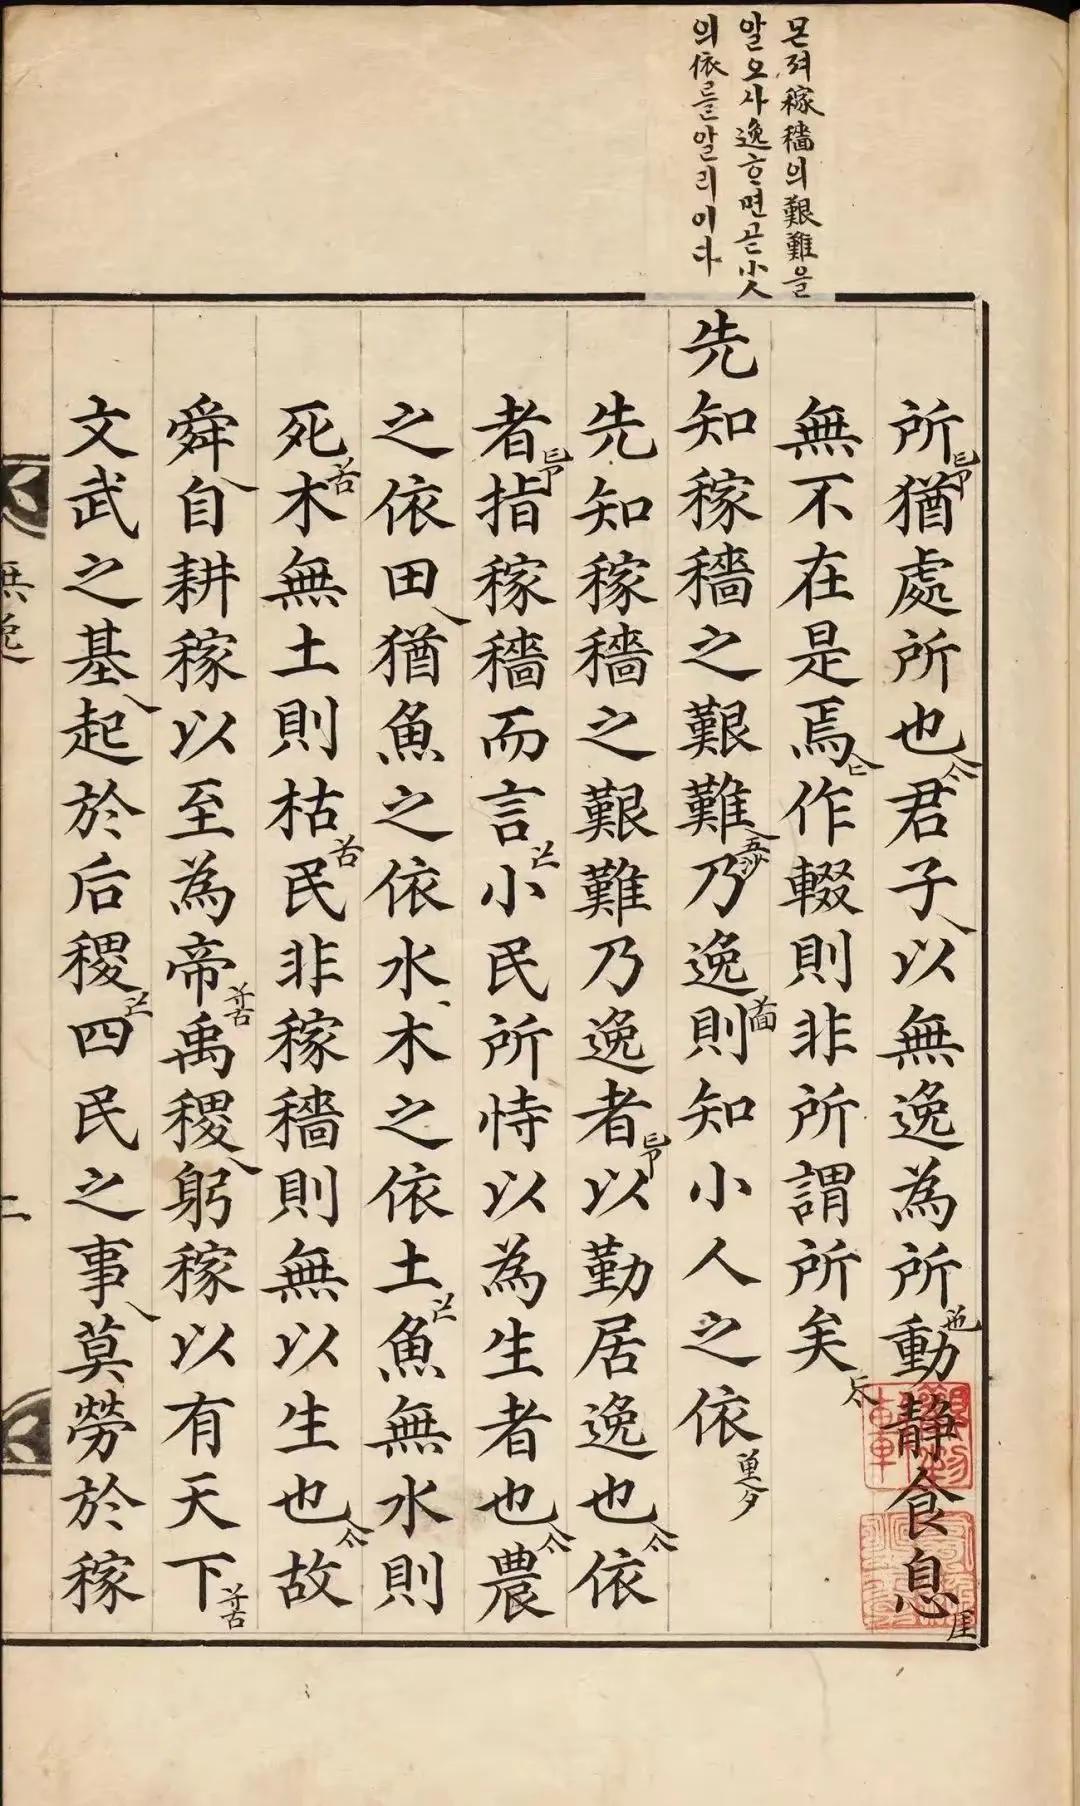 몬져稼穡의艱難을
알오사逸ᄒᆞ면곧小人
의依를알리이다
所猶處所也君子以無逸為所動静食息
無不在是焉作輟則非所謂所矣
先知稼穡之艱難乃逸則知小人之依
先知稼穡之艱難乃逸者以勤居逸也依
者指稼穡而言小民所恃以為生者也農
之依田猶魚之依水木之依土魚無水則
死木無土則枯民非稼穡則無以生也故
舜自耕稼以至為帝禹稷躬稼以有天下
文武之基起於后稷四民之事莫勞於稼
無逸
二